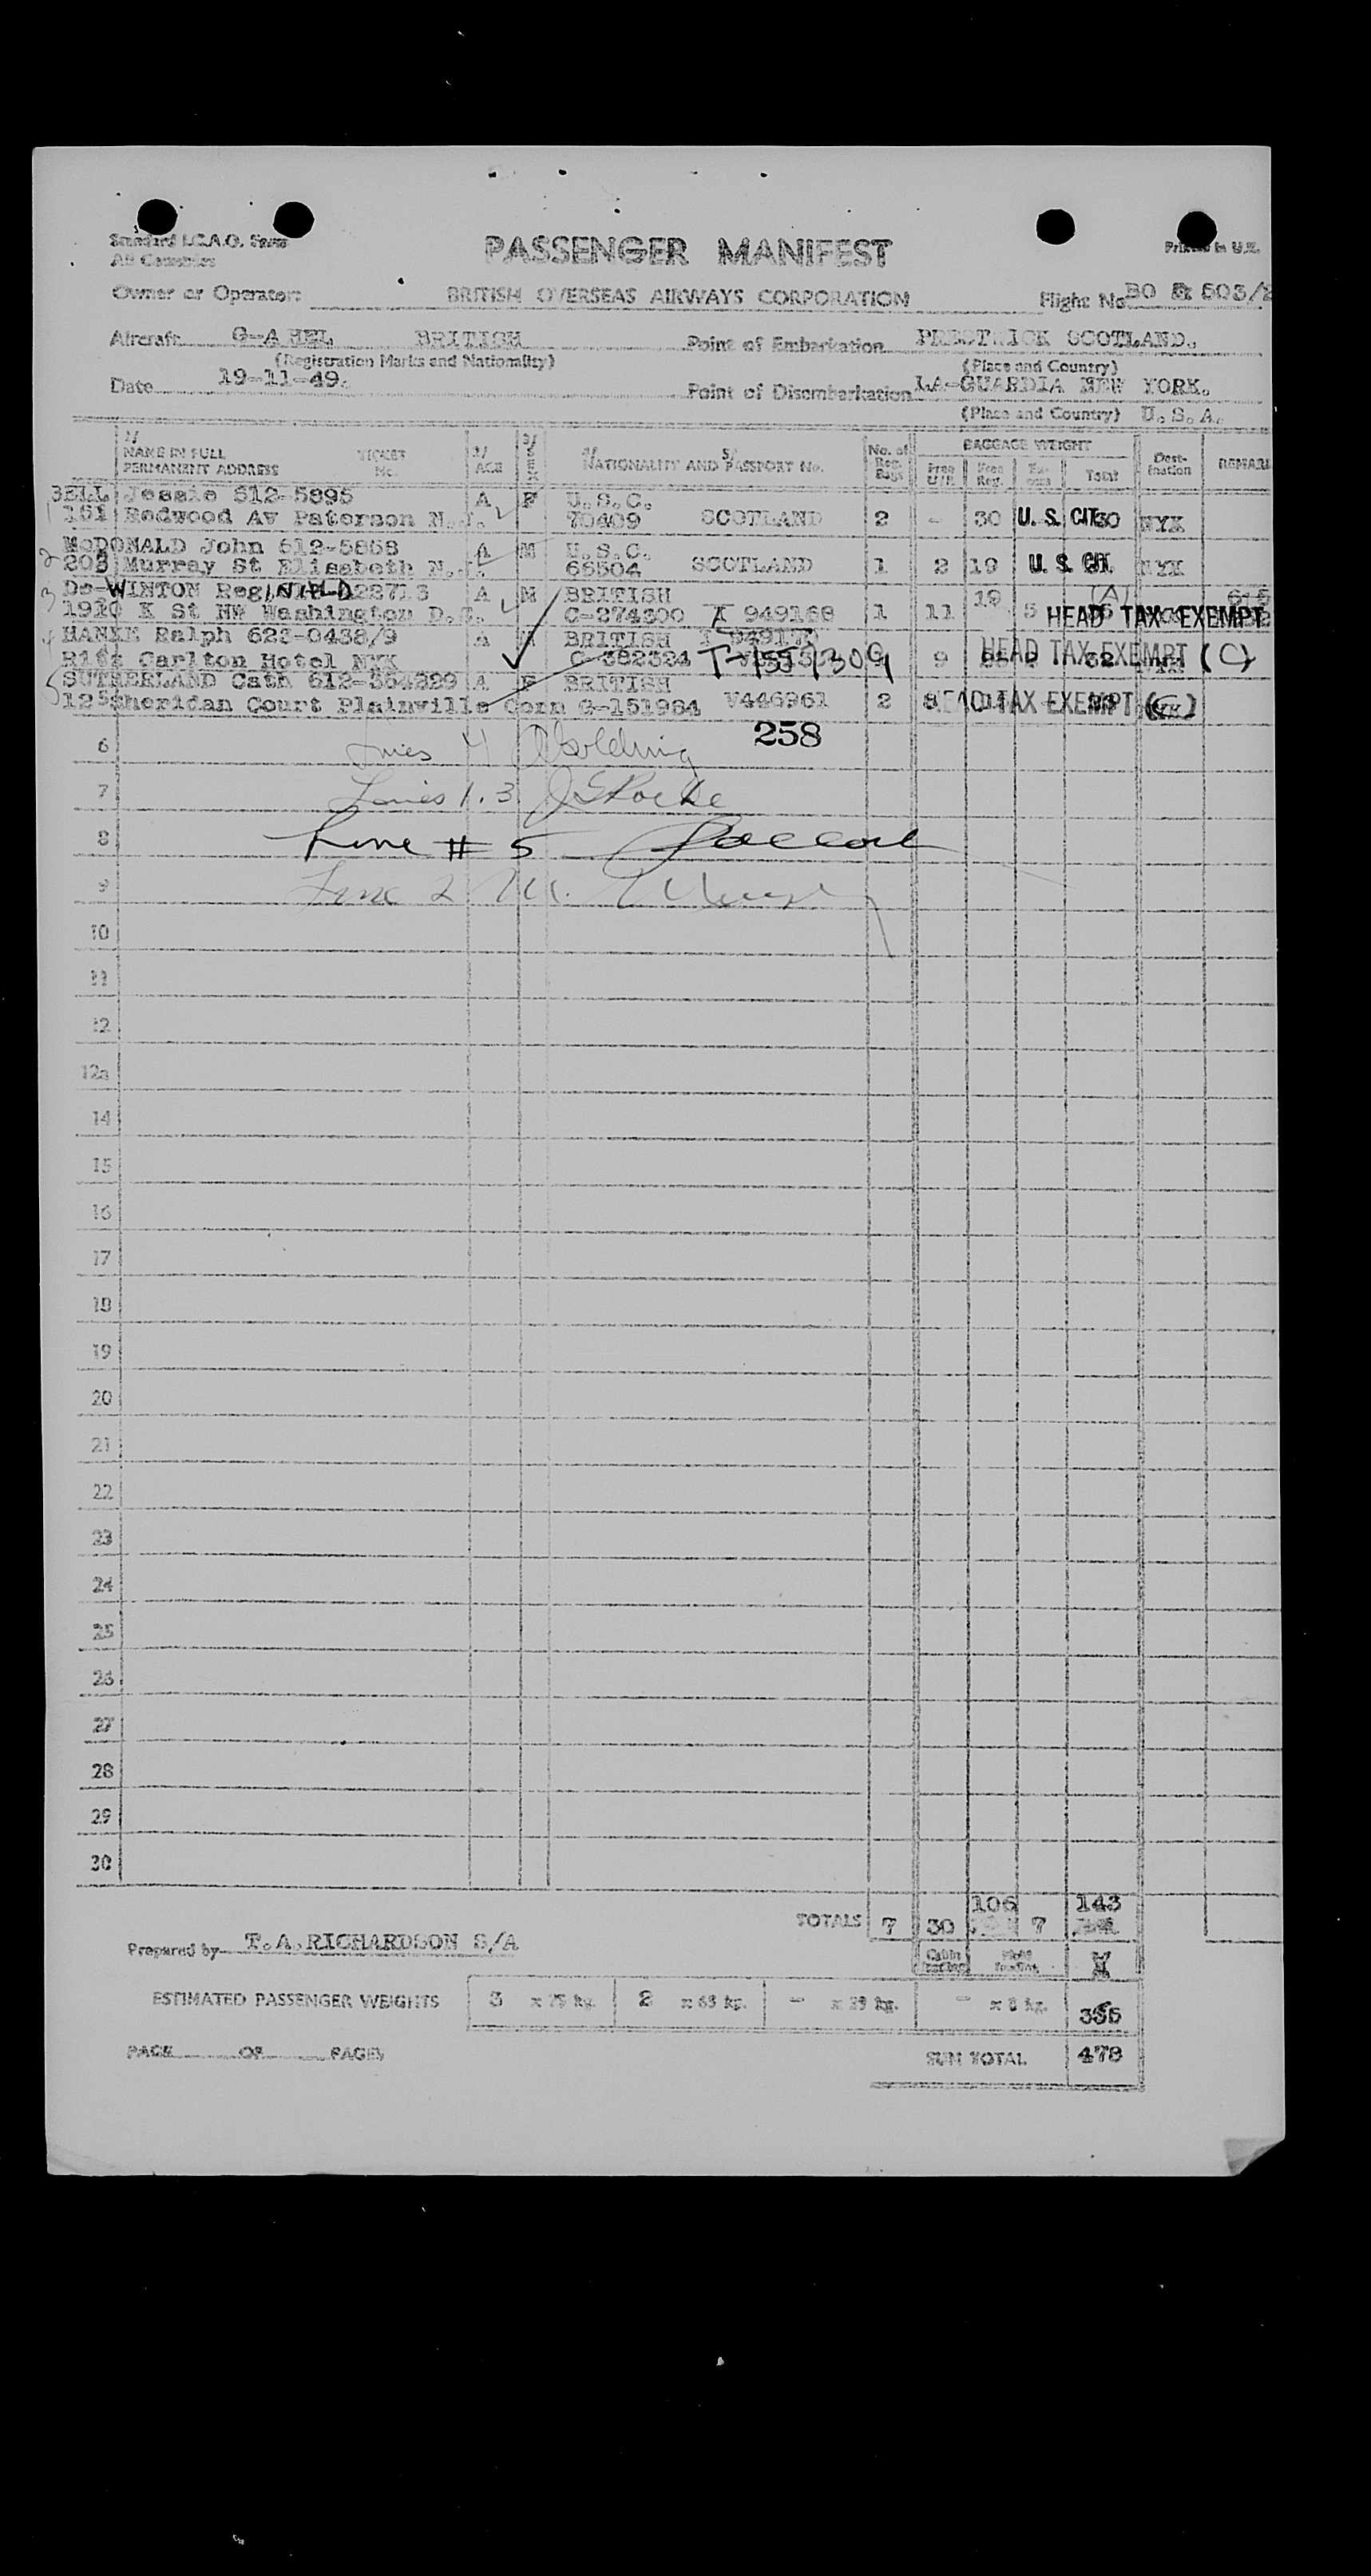 Standard I.C.A.O. Form
All Countries
PASSENGER MANIFEST
Printed in U.K.
Owner or Operator: BRITISH OVERSEAS AIRWAYS CORPORATION Flight No. 503/2
Aircraft G-AHEL BRITISH Point of Embarkation PRESTWICK SCOTLAND.
(Registration Marks and Nationality) (Place and Country)
Date 19-11-49. Point of Disembarkation LA-GUARDIA NEW YORK.
(Place and Country) U.S.A.
NAME IN FULL TICKET No. AGE SEX NATIONALITY AND PASSPORT No. No. of Reg. Bags BAGGAGE WEIGHT Destination REMARK
PERMANENT ADDRESS Free Free Reg. Total
BELL Jessie 612-5895 A F U.S.C.
1 151 Redwood Av Paterson N.J. 70409 SCOTLAND 2 - 30 U.S. CIT. 30 NYK
McDONALD John 612-5858 A M U.S.C.
2 203 Murray St Elizabeth N.J. 66504 SCOTLAND 1 2 19 U.S. NYK
3 De-WINTON REGINALD 22713 A M BRITISH 19 (A)
1910 K St NW Washington D.C. C-274300 I 949168 1 11 5 HEAD TAX EXEMPT
4 HANKE Ralph 623-0438/9 A M BRITISH
Ritz Carlton Hotel NYK C-382384 9 HEAD TAX EXEMPT (C)
5 SUTHERLAND Cath 612-554329 A F BRITISH
125 Sheridan Court Plainville Conn C-151984 V446961 2 8 HEAD TAX EXEMPT (C)
258
6 Lines 4
7 Lines 1.3
8 Line # 5
9 Line 2 M.
10
11
12
12a
14
15
16
17
18
19
20
21
22
23
24
25
26
27
28
29
30
106 143
TOTALS 7 30 7
Prepared by T.A.RICHARDSON S/A
ESTIMATED PASSENGER WEIGHTS 3 x 79 kg. 2 x 63 kg. - x 39 kg. - x 8 kg. 335
PAGE OF PAGES SUM TOTAL 478